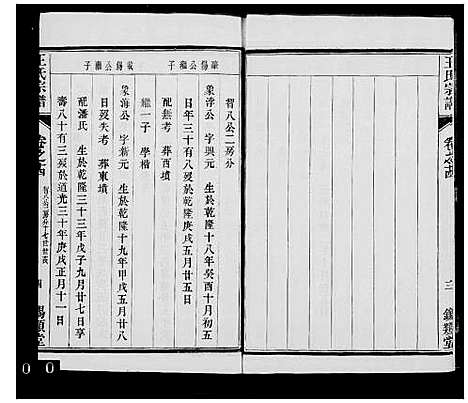 王氏宗譜
三
錫類堂
智八公二房分
華錫公繼子
象浮公 字興元 生於乾隆十八年癸酉十月初五
日年三十有八歿於乾隆庚戌五月廿五日
配無考 葬西墳
繼一子 學楷
載錫公繼子
象海公 字蒲元 生於乾隆十九年甲戌五月廿八
日歿失考 葬東墳
配潘氏 生於乾隆三十三年戊子九月廿七日享
壽八十有三歿於道光三十年庚戌正月十一日
王氏宗譜
卷之四
四
錫類堂
0 0